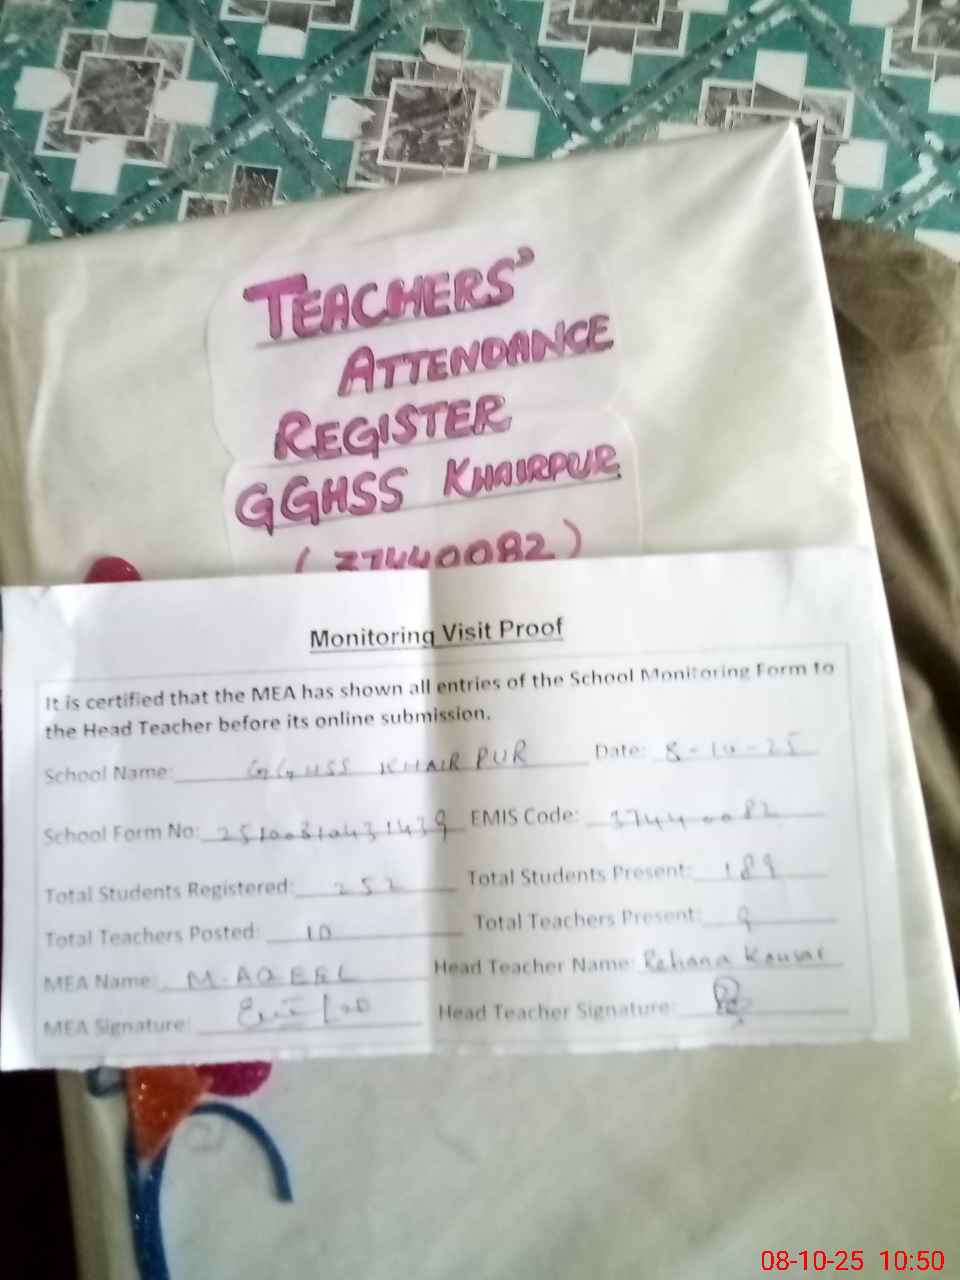 TEACHERS'
ATTENDANCE
REGISTER
GGHSS KHAIRPUR
(37440082)
Monitoring Visit Proof
It is certified that the MEA has shown all entries of the School Monitoring Form to
the Head Teacher before its online submission.
School Name: GGHSS KHAIRPUR Date: 8-10-25
School Form No: EMIS Code: 37440082
Total Students Registered: 252 Total Students Present: 189
Total Teachers Posted: 10 Total Teachers Present: 9
MEA Name: M. AQEEL Head Teacher Name: Rehana Kousar
MEA Signature: Head Teacher Signature:
08-10-25 10:50